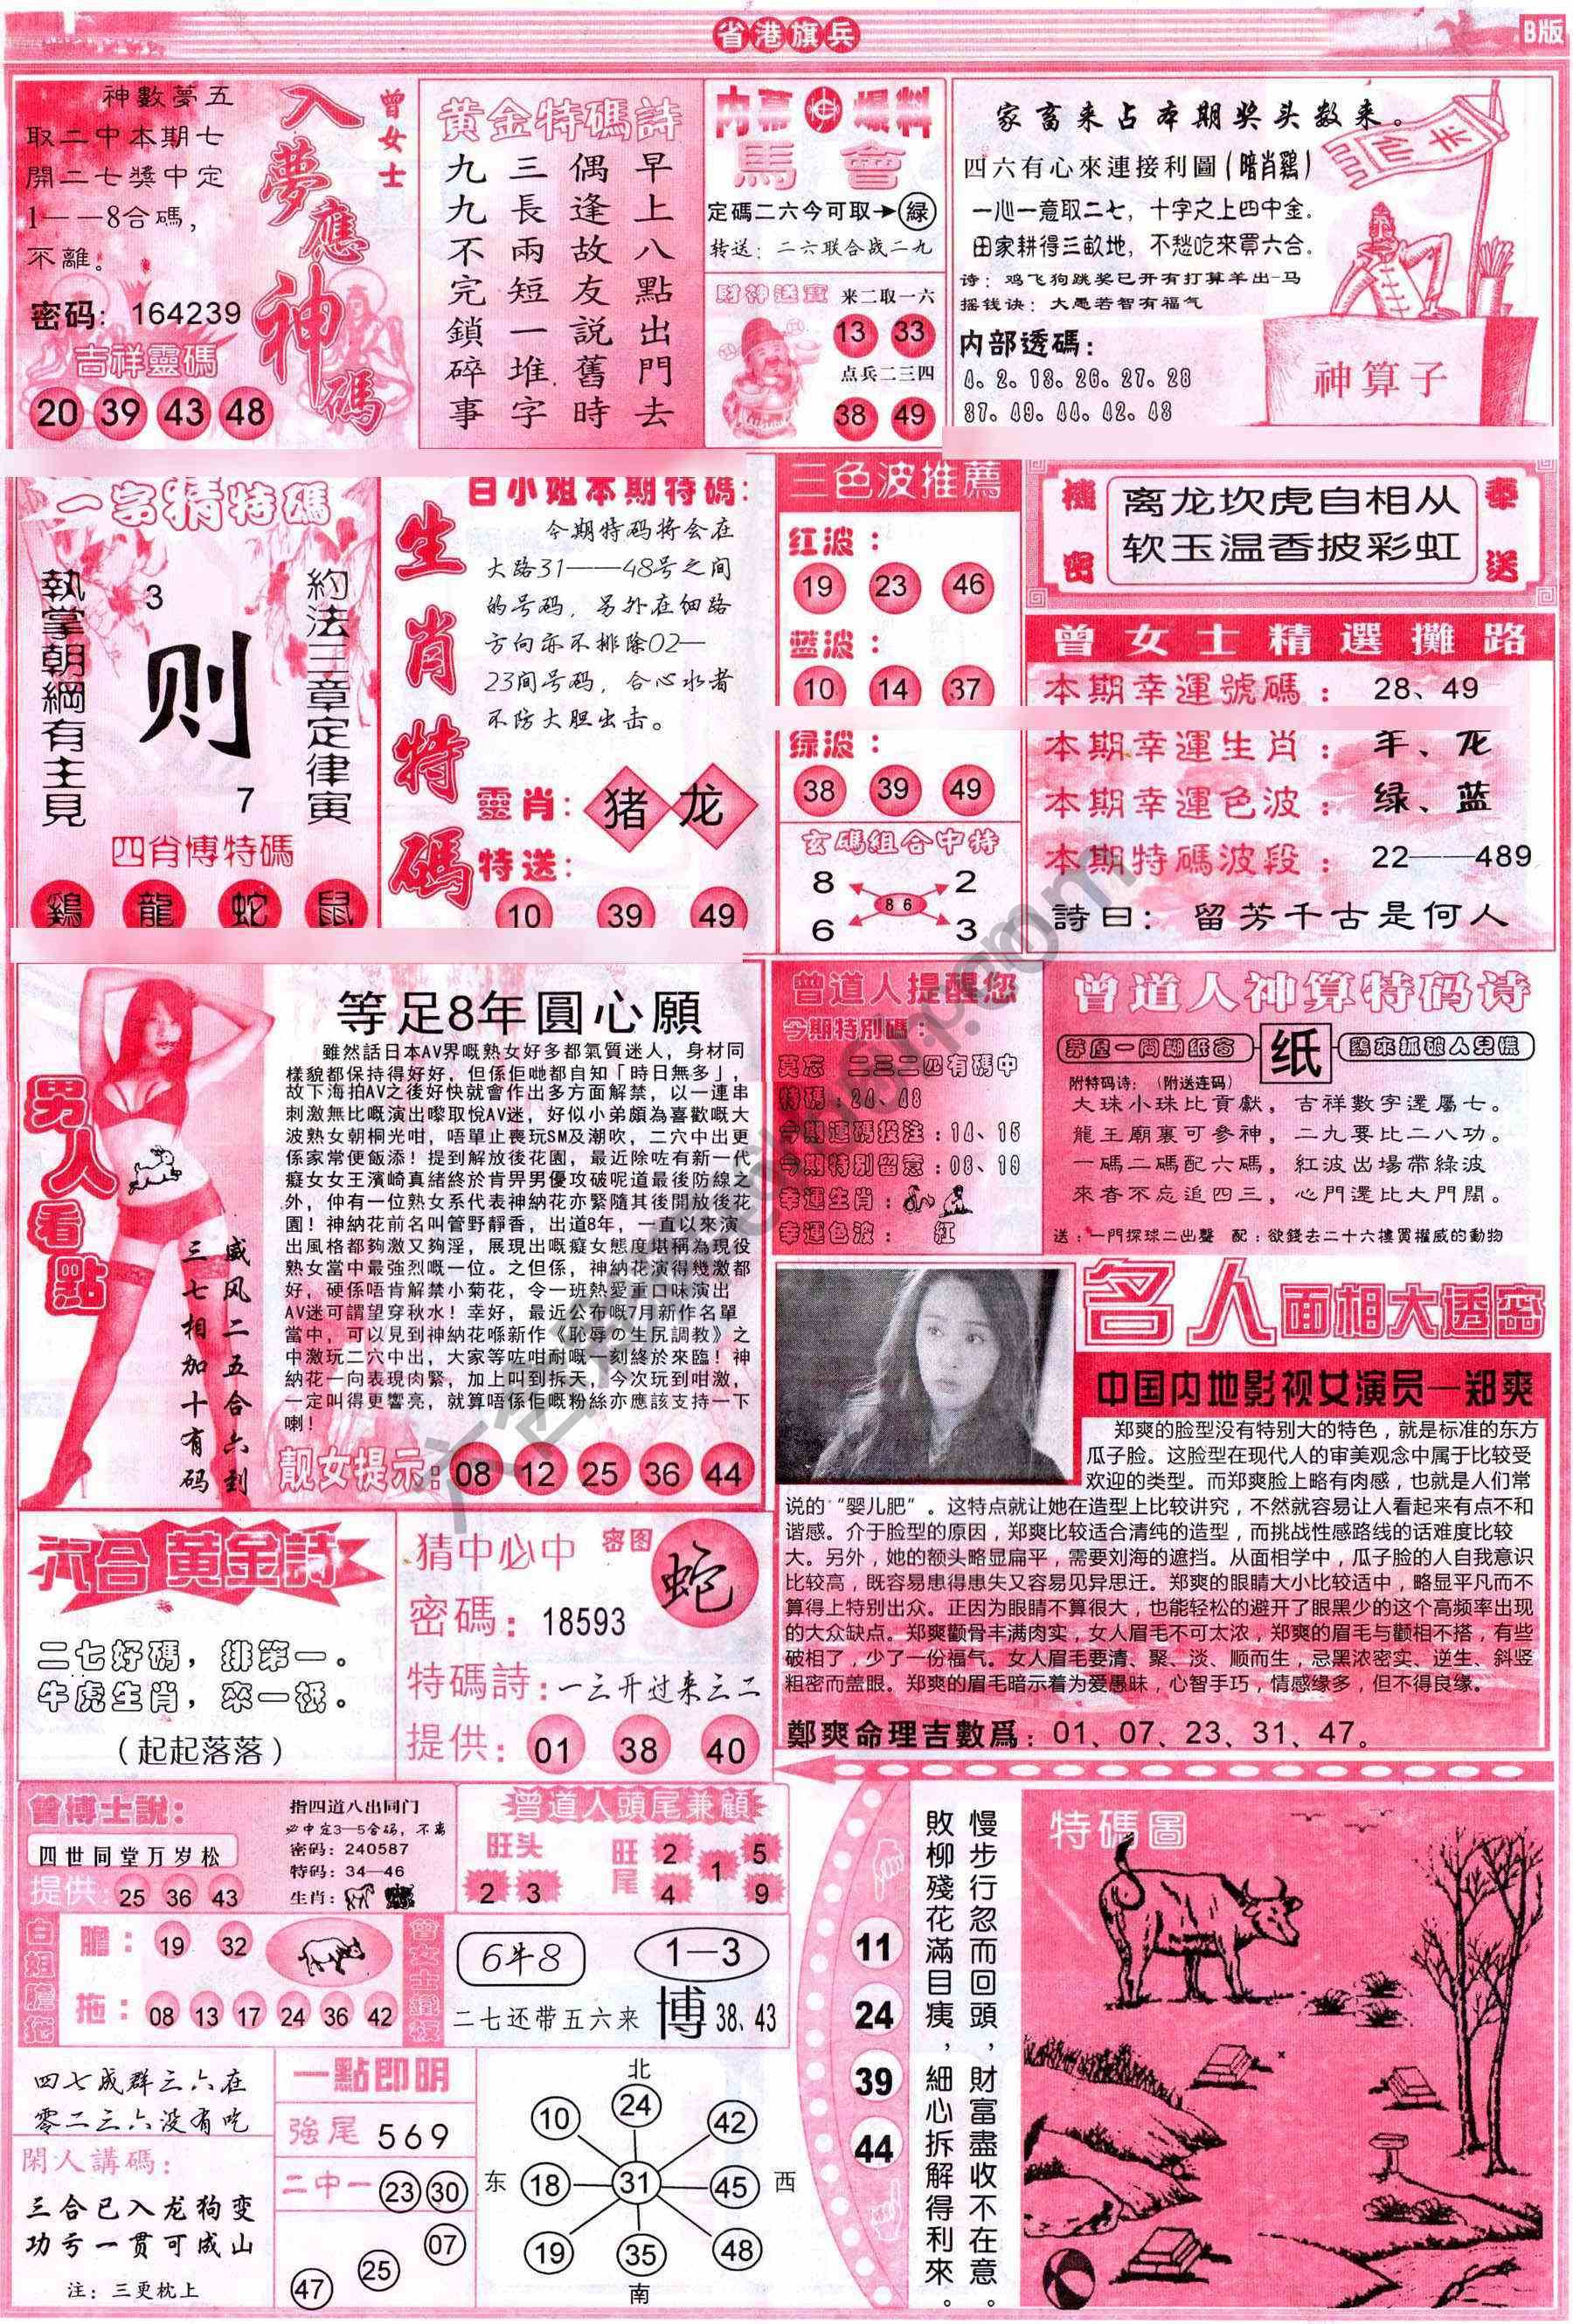 省港旗兵
B版
神數夢五
取二中本期七
開二七獎中定
1——8合碼，
不離。
密码：164239
吉祥靈碼
20 39 43 48
曾女士
入夢應神碼
黄金特碼詩
早上八點出門去
偶逢故友說舊時
三長兩短一堆字
九九不完鎖碎事
内幕爆料
馬會
定碼二六今可取→綠
转送：二六联合战二九
財神送寶
来二取一六
13 33
点兵二三四
38 49
家畜来占本期奖头数来。
四六有心來連接利圖(暗肖鷄)
一心一意取二七，十字之上四中金。
田家耕得三畝地，不愁吃來買六合。
诗：鸡飞狗跳奖已开有打算羊出-马
摇钱诀：大愚若智有福气
内部透碼：
4、2、18、26、27、28
37、49、44、42、48
半仙
神算子
一字猜特碼
約法三章定律寅
3
则
7
執掌朝綱有主見
四肖博特碼
鷄 龍 蛇 鼠
生肖特碼
白小姐本期特碼：
今期特码将会在
大路31——48号之间
的号码，另外在细路
方向亦不排除02—
23间号码，合心水者
不防大胆出击。
靈肖：猪 龙
特送：
10 39 49
三色波推薦
红波：
19 23 46
蓝波：
10 14 37
绿波：
38 39 49
玄碼組合中特
8 2
86
6 3
機密
奉送
离龙坎虎自相从
软玉温香披彩虹
曾女士精選攤路
本期幸運號碼：28、49
本期幸運生肖：羊、龙
本期幸運色波：绿、蓝
本期特碼波段：22——489
詩曰：留芳千古是何人
男人看點
威风二五合六到
三七相加十有码
等足8年圓心願
雖然話日本AV界嘅熟女好多都氣質迷人，身材同
樣貌都保持得好好，但係佢哋都自知「時日無多」，
故下海拍AV之後好快就會作出多方面解禁，以一連串
刺激無比嘅演出嚟取悅AV迷，好似小弟頗為喜歡嘅大
波熟女朝桐光咁，唔單止喪玩SM及潮吹，二穴中出更
係家常便飯添！提到解放後花園，最近除咗有新一代
癡女女王濱崎真緒終於肯畀男優攻破呢道最後防線之
外，仲有一位熟女系代表神納花亦緊隨其後開放後花
園！神納花前名叫管野靜香，出道8年，一直以來演
出風格都夠激又夠淫，展現出嘅癡女態度堪稱為現役
熟女當中最強烈嘅一位。之但係，神納花演得幾激都
好，硬係唔肯解禁小菊花，令一班熱愛重口味演出
AV迷可謂望穿秋水！幸好，最近公布嘅7月新作名單
當中，可以見到神納花喺新作《恥辱の生尻調教》之
中激玩二穴中出，大家等咗咁耐嘅一刻終於來臨！神
納花一向表現肉緊，加上叫到拆天，今次玩到咁激，
一定叫得更響亮，就算唔係佢嘅粉絲亦應該支持一下
喇！
靓女提示：08 12 25 36 44
曾道人提醒您
今期特別碼：
莫忘 二三二四有碼中
特碼：24、48
今期連碼投注：14、15
今期特別留意：08、19
幸運生肖：
幸運色波： 紅
曾道人神算特码诗
茅屋一間期紙窗
纸
鷄來抓破人兒慌
附特码诗：（附送连码）
大珠小珠比貢獻，吉祥數字還屬七。
龍王廟裏可參神，二九要比二八功。
一碼二碼配六碼，紅波出場帶綠波
來者不忘追四三，心門還比大門闊。
送：一門探球二出聲 配：欲錢去二十六樓買權威的動物
名人面相大透密
中国内地影视女演员—郑爽
郑爽的脸型没有特别大的特色，就是标准的东方
瓜子脸。这脸型在现代人的审美观念中属于比较受
欢迎的类型。而郑爽脸上略有肉感，也就是人们常
说的“婴儿肥”。这特点就让她在造型上比较讲究，不然就容易让人看起来有点不和
谐感。介于脸型的原因，郑爽比较适合清纯的造型，而挑战性感路线的话难度比较
大。另外，她的额头略显扁平，需要刘海的遮挡。从面相学中，瓜子脸的人自我意识
比较高，既容易患得患失又容易见异思迁。郑爽的眼睛大小比较适中，略显平凡而不
算得上特别出众。正因为眼睛不算很大，也能轻松的避开了眼黑少的这个高频率出现
的大众缺点。郑爽颧骨丰满肉实，女人眉毛不可太浓，郑爽的眉毛与颧相不搭，有些
破相了，少了一份福气。女人眉毛要清、聚、淡、顺而生，忌黑浓密实、逆生、斜竖
粗密而盖眼。郑爽的眉毛暗示着为爱愚昧，心智手巧，情感缘多，但不得良缘。
鄭爽命理吉數爲：01、07、23、31、47。
六合黄金詩
二七好碼，排第一。
牛虎生肖，來一抵。
（起起落落）
猜中必中
密图
蛇
密碼：18593
特碼詩：一三开过来三二
提供：01 38 40
曾博士說：
四世同堂万岁松
提供：25 36 43
指四道八出同门
必中定3—5合码，不离
密码：240587
特码：34—46
生肖：
曾道人頭尾兼顧
旺头
2 3
旺尾
2 5 1 4 9
白姐膽拖
膽：19 32
拖：08 13 17 24 36 42
6牛8
1—3
二七还带五六来
博 38、43
四七成群三六在
零二三六没有吃
閑人講碼：
三合已入龙狗变
功亏一贯可成山
注：三更枕上
一點即明
強尾 569
二中一 23 30
07
25
47
北
10 24 42
东 18 31 45 西
19 35 48
南
11
24
39
44
慢步行忽而回頭，財富盡收不在意。
敗柳殘花滿目痍，細心拆解得利來。
特碼圖